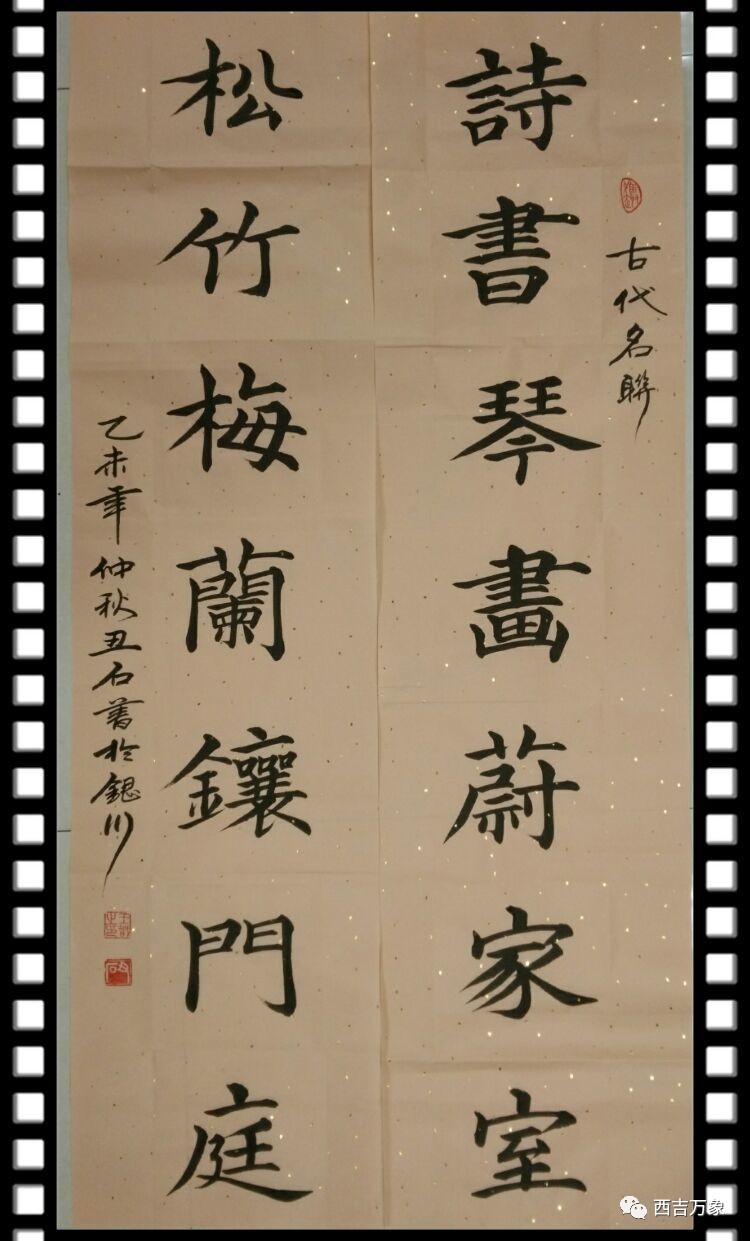 古代名聯
詩書琴畫蔚家室
松竹梅蘭鑲門庭
乙未年仲秋丑石書於銀川
西吉万象